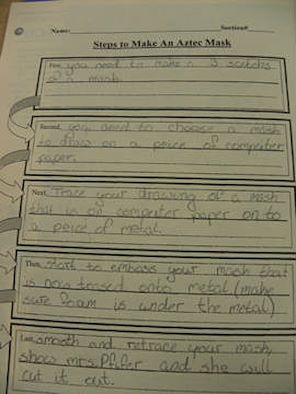 Name: Section#
Steps to Make An Aztec Mask
First, you need to make a 3 scetchs
of a mask.
Second, you need to choose a mask
to draw on a peice of computer
paper.
Next, Trace your drawing of a mask
that is on computer paper on to
a peice of metal.
Then, start to embass your mask that
is now trased onto metal (make
sure foam is under the metal)
Last, smooth and retrace your mask,
show mrs. Pfifer and she will
cut it out.